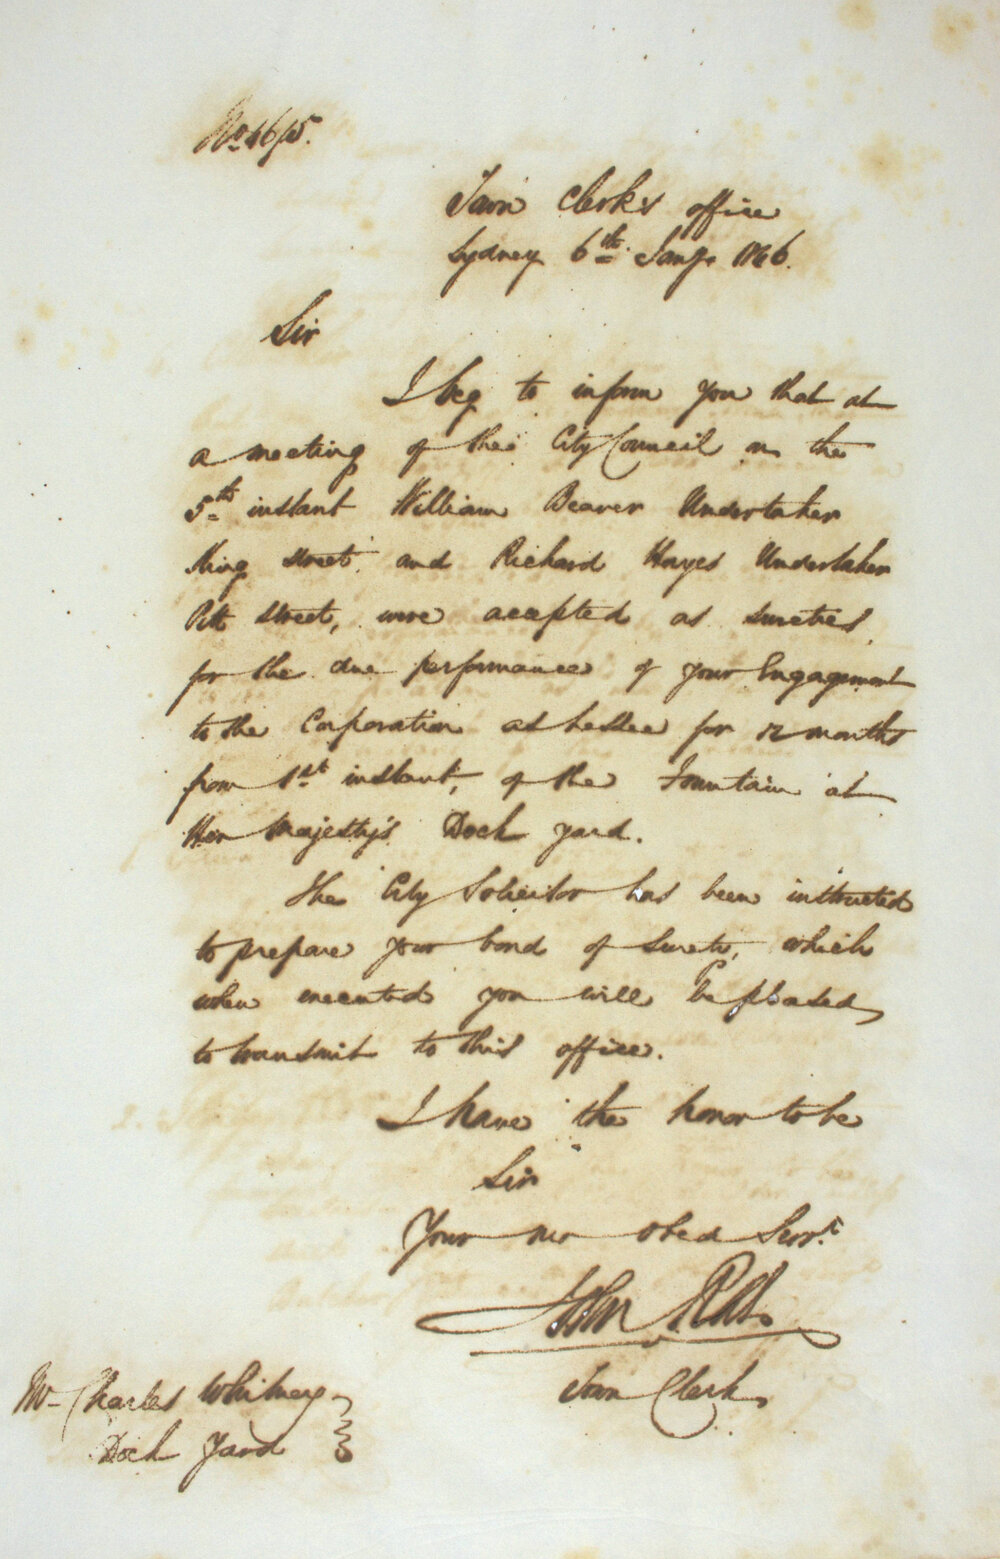 No. 46/15.
Town Clerk's office
Sydney 6th. Jany. 1846.
Sir
I beg to inform you that at
a meeting of the City Council on the
5th instant William Beaver Undertaker
King street and Richard Hayes Undertaker
Pitt street, were accepted as sureties
for the due performance of your Engagement
to the Corporation as Lessee for 12 months
from 1st instant, of the Fountain at
Her Majesty's Dock yard.
The City Solicitor has been instructed
to prepare your bond of Surety, which
when executed you will be pleased
to transmit to this office.
I have the honor to be
Sir
Your mo obed Servt.
John
Town Clerk
Mr Charles Whitney
Dock Yard